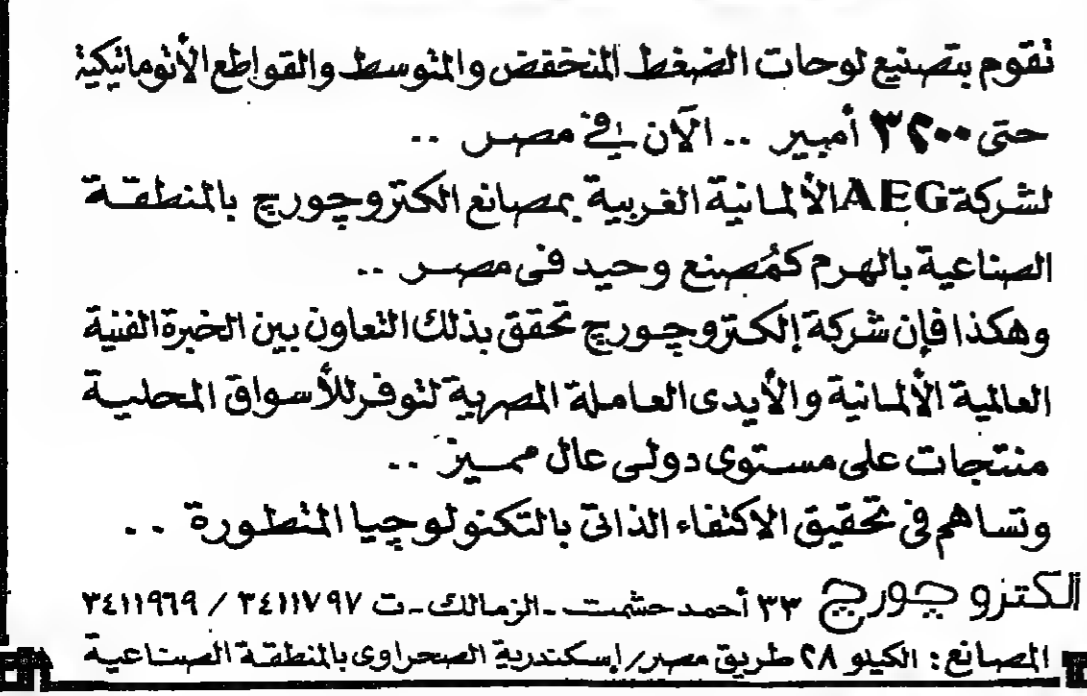 نقوم بتصنيع لوحات الضغط المنخفض والمتوسط والقواطع الأتوماتيكية
حتى ٣٢٠٠ أمبير .. الآن في مصر ..
لشركة AEG الألمانية الغربية بمصانع الكتروچورچ بالمنطقة
الصناعية بالهرم كمُصنع وحيد فى مصر ..
وهكذا فإن شركة إلكتروچورچ تحقق بذلك التعاون بين الخبرة الفنية
العالمية الألمانية والأيدى العاملة المصرية لتوفر للأسواق المحلية
منتجات على مستوى دولى عال مميز ..
وتساهم فى تحقيق الاكتفاء الذاتى بالتكنولوجيا المتطورة ..
الكترو چورچ ٣٣ أحمد حشمت - الزمالك - ت ٣٤١١٧٩٧ / ٣٤١١٩٦٩
المصانع : الكيلو ٢٨ طريق مصر / إسكندرية الصحراوى بالمنطقة الصناعية